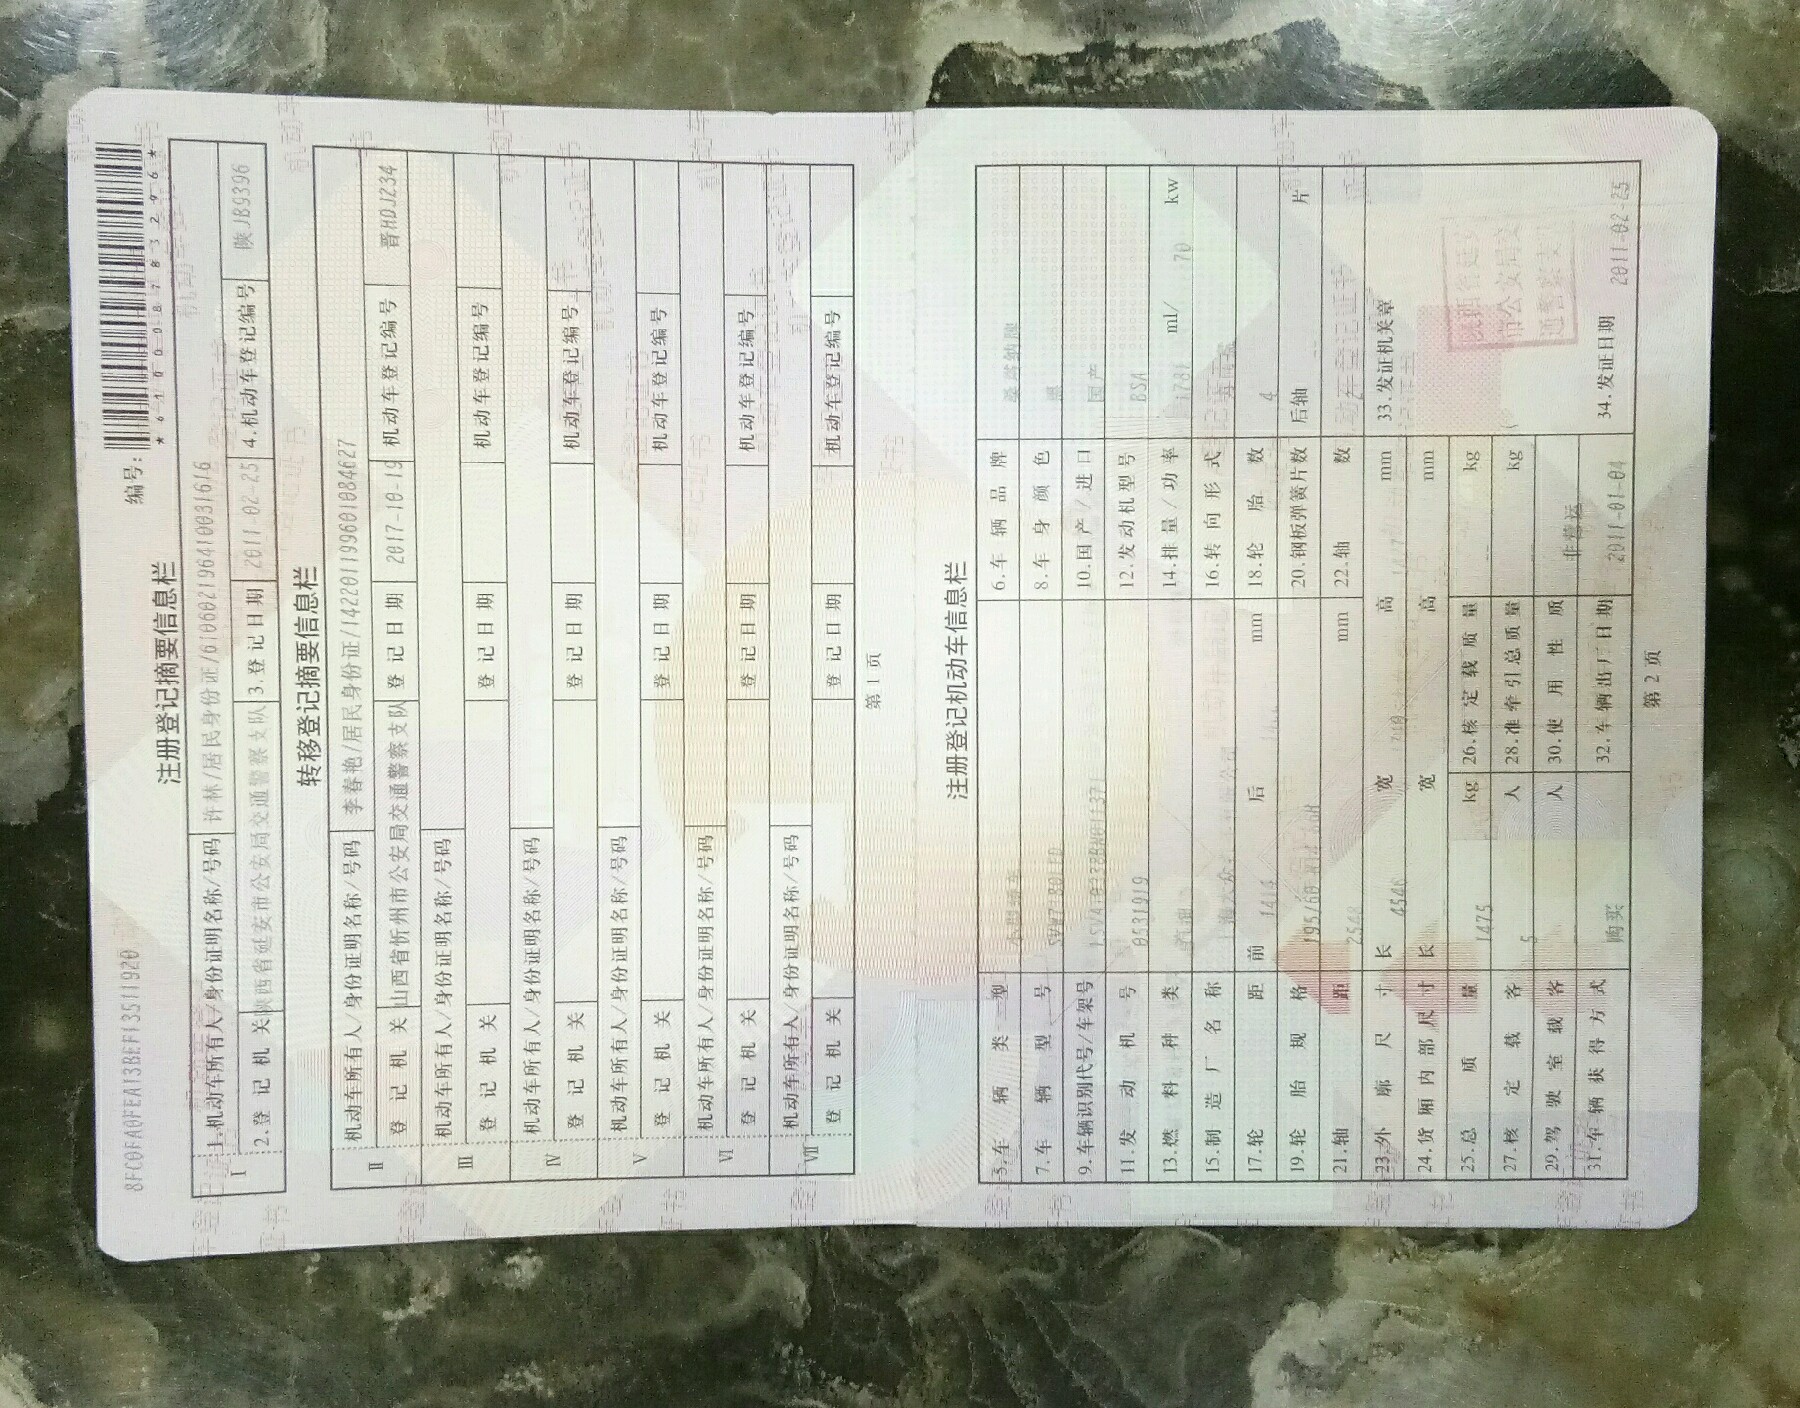 8FC0FA0FEA13BEF13511920
编号:
*610008783296*
注册登记摘要信息栏
Ⅰ 1.机动车所有人/身份证明名称/号码 许林/居民身份证/610002196410031616
2.登记机关 陕西省延安市公安局交通警察支队 3.登记日期 2011-02-25 4.机动车登记编号 陕JB9396
转移登记摘要信息栏
Ⅱ 机动车所有人/身份证明名称/号码 李春艳/居民身份证/142201199601084627
登记机关 山西省忻州市公安局交通警察支队 登记日期 2017-10-19 机动车登记编号 晋HDJ234
Ⅲ 机动车所有人/身份证明名称/号码
登记机关 登记日期 机动车登记编号
Ⅳ 机动车所有人/身份证明名称/号码
登记机关 登记日期 机动车登记编号
Ⅴ 机动车所有人/身份证明名称/号码
登记机关 登记日期 机动车登记编号
Ⅵ 机动车所有人/身份证明名称/号码
登记机关 登记日期 机动车登记编号
Ⅶ 机动车所有人/身份证明名称/号码
登记机关 登记日期 机动车登记编号
第1页
注册登记机动车信息栏
5.车辆类型 小型轿车 6.车辆品牌 桑塔纳牌
7.车辆型号 8.车身颜色 黑
9.车辆识别代号/车架号 10.国产/进口 国产
11.发动机号 0531919 12.发动机型号 BSA
13.燃料种类 汽油 14.排量/功率 1781 ml/ 70 kw
15.制造厂名称 16.转向形式
17.轮距 前 1414 后 mm 18.轮胎数 4
19.轮胎规格 195/60 R14 86H 20.钢板弹簧片数 后轴 片
21.轴距 2548 mm 22.轴数 2
23.外廓尺寸 长 4546 宽 高 mm 33.发证机关章
24.货厢内部尺寸 长 宽 高 mm
25.总质量 1475 kg 26.核定载质量 kg
27.核定载客 5 人 28.准牵引总质量 kg
29.驾驶室载客 人 30.使用性质 非营运
31.车辆获得方式 购买 32.车辆出厂日期 2011-01-04 34.发证日期 2011-02-25
第2页